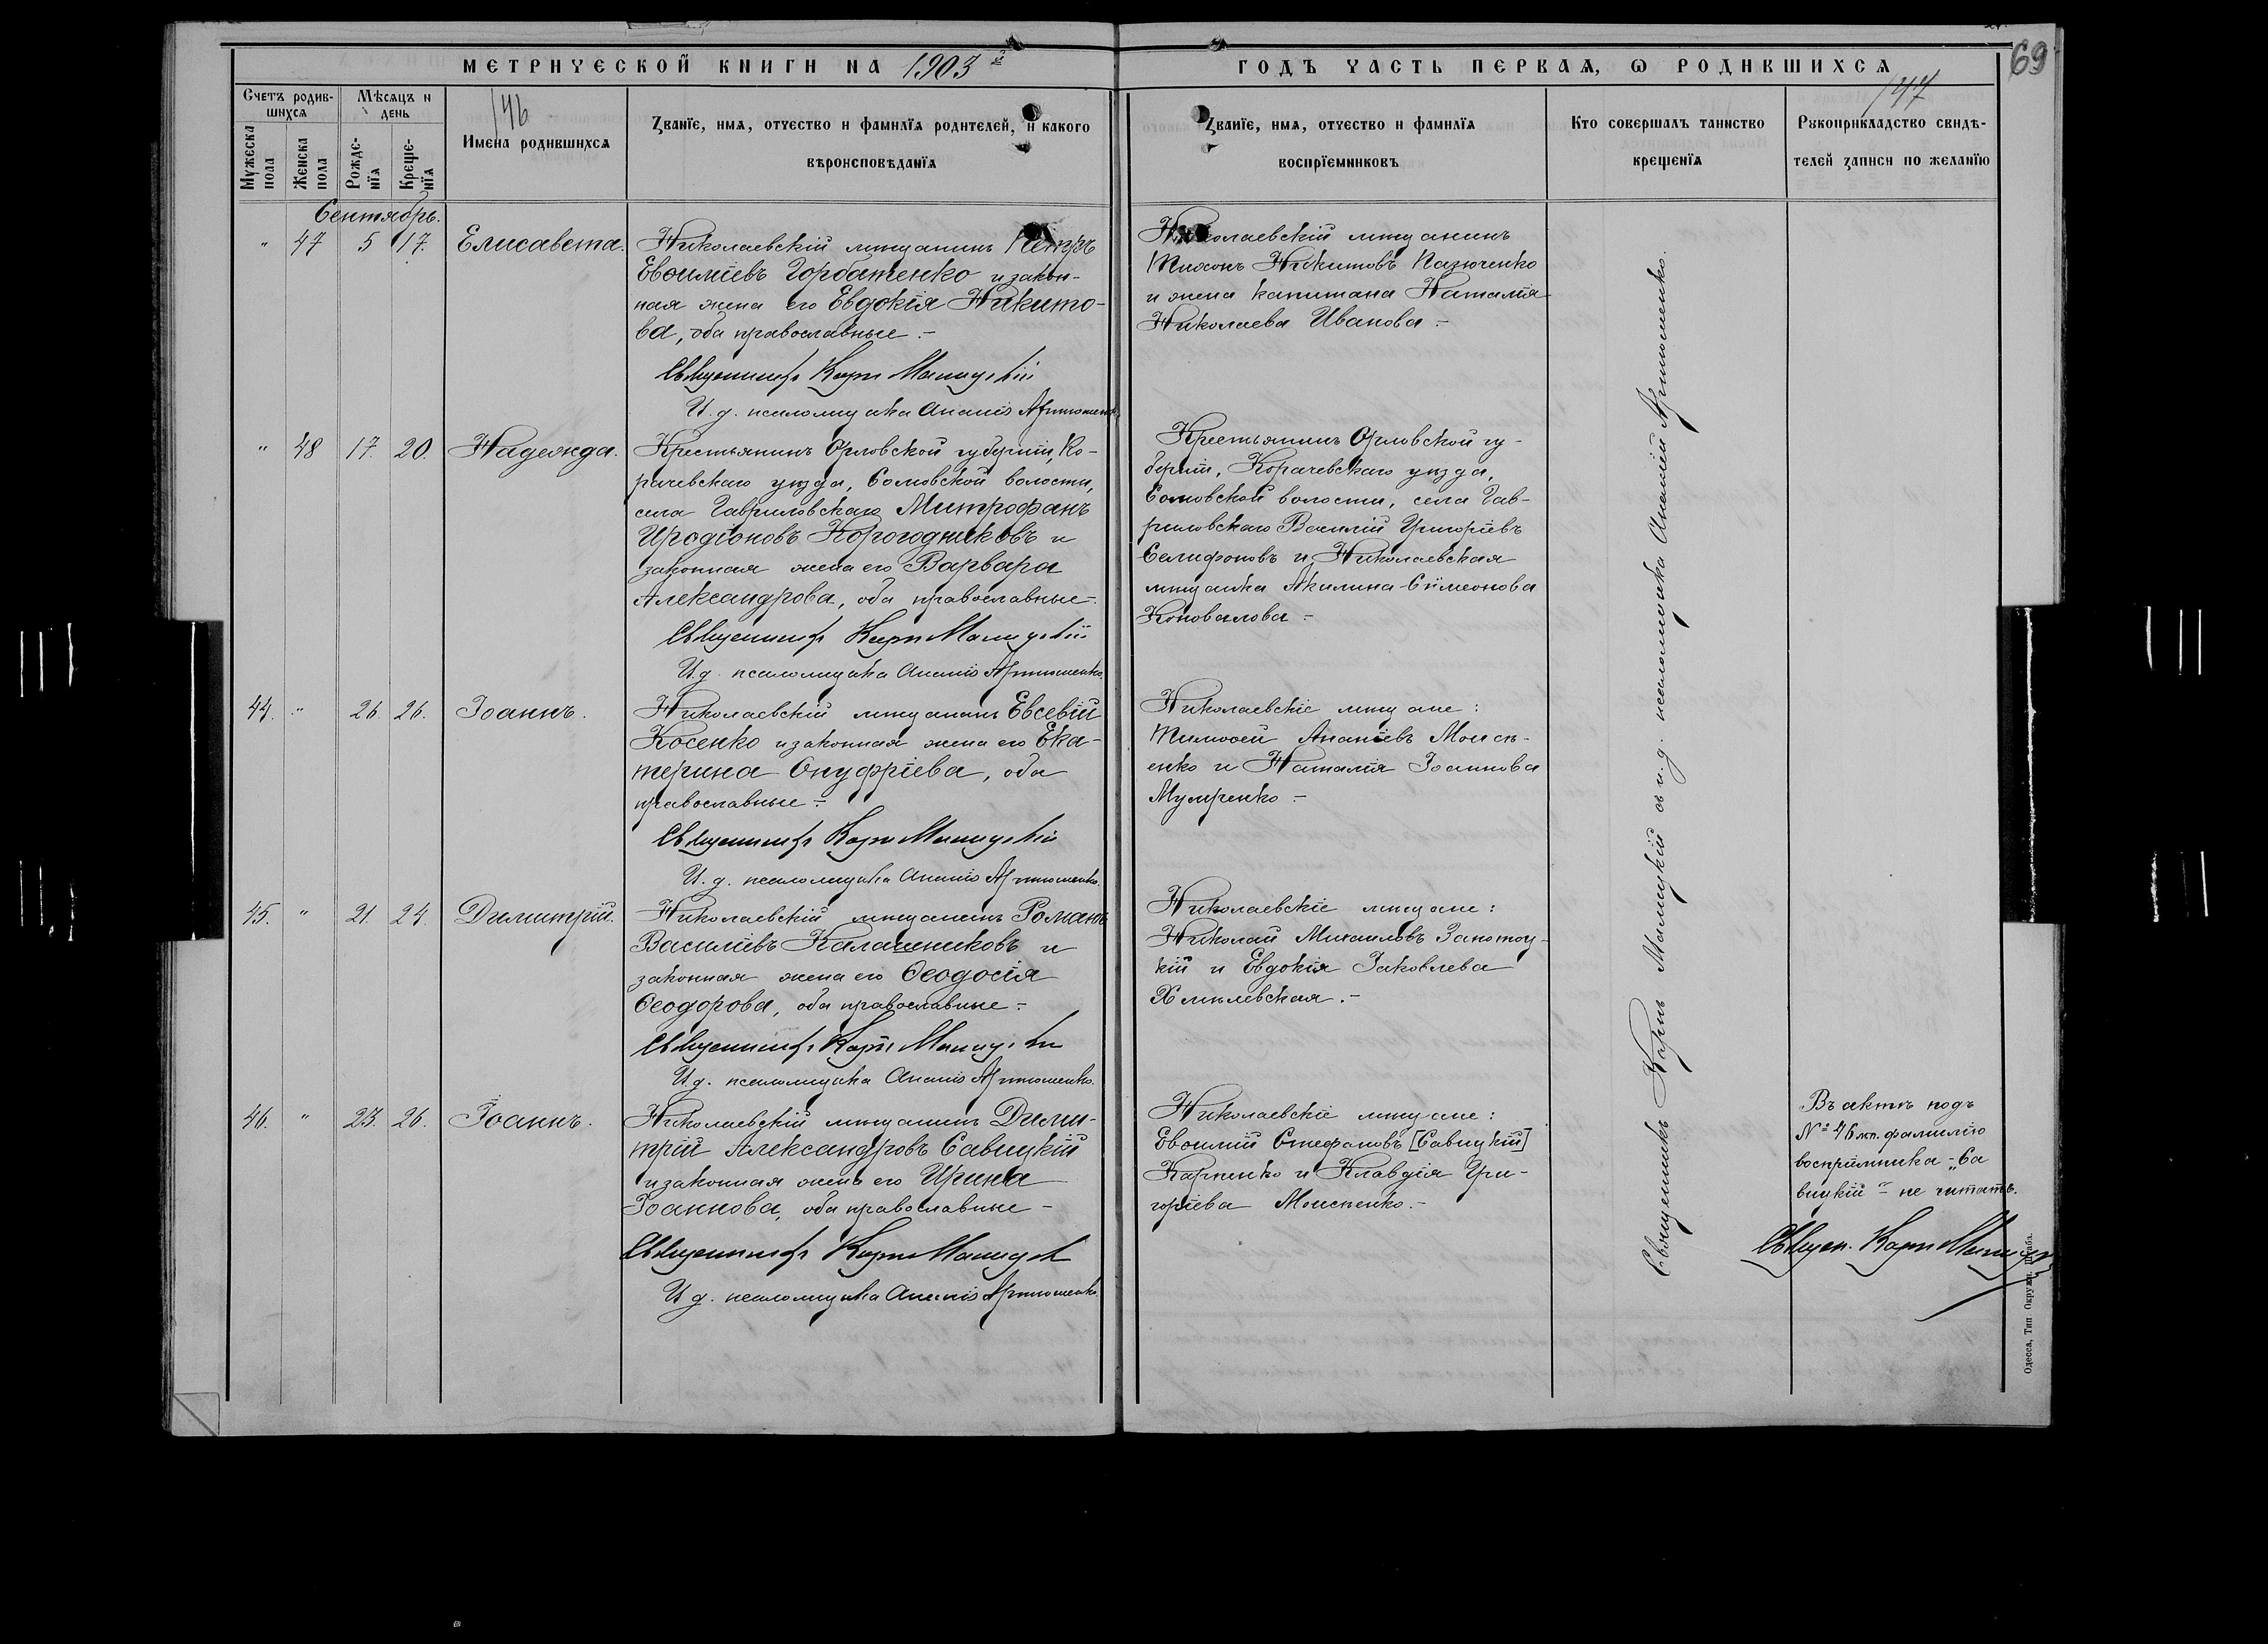 МЕТРИЧЕСКОЙ КНИГИ НА 1903 й
ГОДЪ ЧАСТЬ ПЕРВАЯ, Ѡ РОДИВШИХСЯ
69
146
147
Счетъ родив-
шихся
Мужеска пола
Женска пола
Мѣсяцъ и
день
Рожде-
нїя
Креще-
нїя
Имена родившихся
Званїе, имя, отчество и фамилїя родителей, и какого
вѣроисповѣданїя
Званїе, имя, отчество и фамилїя
воспрїемниковъ
Кто совершалъ таинство
крещенїя
Рукоприкладство свидѣ-
телей записи по желанїю
Сентябрь.
" 47 5 17. Елисавета.
Николаевскій мѣщанинъ Петръ
Евѳиміевъ Горбатенко и закон-
ная жена его Евдокія Никито-
ва, оба православные.-
Священникъ Карпъ Малицкій
И. д. псаломщика Ананій Артюшенко
Николаевскій мѣщанинъ
Тихонъ Никитовъ Пазюченко
и жена капитана Наталія
Николаева Иванова.-
" 48 17. 20. Надежда.
Крестьянинъ Орловской губерніи, Ко-
рачевскаго уѣзда, Сомовской волости,
села Гавриловскаго Митрофанъ
Иродіоновъ Корогодниковъ и
законная жена его Варвара
Александрова, оба православные.-
Священникъ Карпъ Малицкій
И.д. псаломщика Ананій Артюшенко.
Крестьянинъ Орловской гу-
берніи, Корачевскаго уѣзда,
Сомовской волости, села Гав-
риловскаго Василій Григоріевъ
Селифоновъ и Николаевская
мѣщанка Акилина Симеонова
Коновалова.-
44. " 26. 26. Іоаннъ.
Николаевскій мѣщанинъ Евсевій
Косенко и законная жена его Ека-
терина Онуфріева, оба
православные.-
Священникъ Карпъ Малицкій
И. д. псаломщика Ананій Артюшенко.
Николаевскіе мѣщане:
Тимоѳей Ананіевъ Моисѣ-
енко и Наталія Іоаннова
45. " 21. 24. Димитрій.
Николаевскій мѣщанинъ Романъ
Василіевъ Калашниковъ и
законная жена его Ѳеодосія
Ѳеодорова, оба православные.-
Священникъ Карпъ Малицкій
И.д. псаломщика Ананій Артюшенко.
Николаевскіе мѣщане:
Николай Михаиловъ Запотоц-
кій и Евдокія Іаковлева
Хмѣлевская.-
46. " 23. 26. Іоаннъ.
Николаевскій мѣщанинъ Дими-
трій Александровъ Савицкій
и законная жена его Ирина
Іоаннова, оба православные -
Священникъ Карпъ Малицкій
И д. псаломщика Ананій Артюшенко.
Николаевскіе мѣщане:
Евѳимій Стефановъ [Савицкій]
Карпенко и Клавдія Гри-
горіева Моисеенко.-
Священникъ Карпъ Малицкій съ и. д. псаломщика Ананіемъ Артюшенко.
Въ актѣ подъ
№ 46 мп. фамилію
воспріемника - „Са
вицкій" - не читать.
Священ. Карпъ Малицкій
Одесса, Тип. Окружн. Штаба.